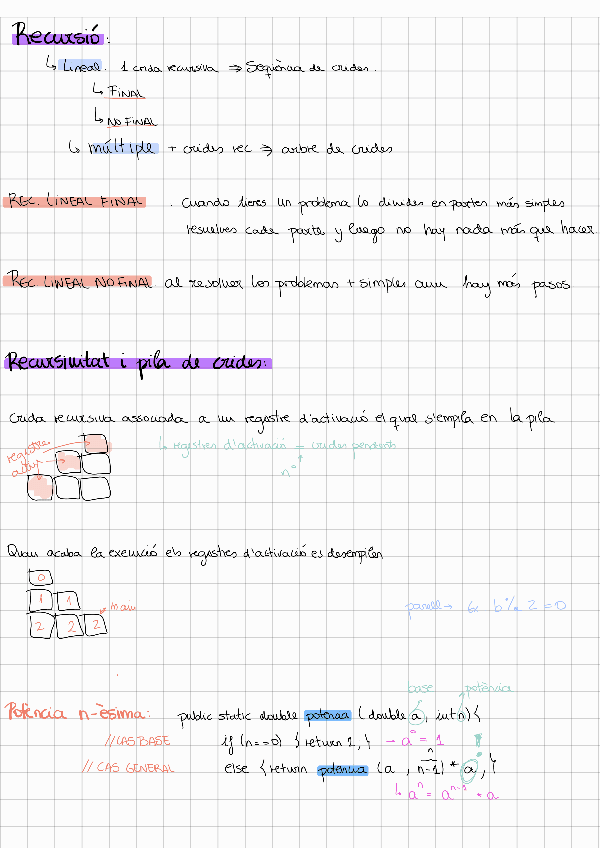 Recursió:
↳ Lineal. 1 crida recursiva ⇒ Seqüència de crides.
↳ FINAL
↳ NO FINAL
↳ múltiple + crides rec ⇒ arbre de crides
REC. LINEAL FINAL . Cuando tienes un problema lo divides en partes más simples
resuelves cada parte y luego no hay nada más que hacer.
REC. LINEAL NO FINAL al resolver los problemas + simples aun hay más pasos
Recursivitat i pila de crides:
Crida recursiva associada a un registre d'activació el qual s'empila en la pila
registre
activ
↳ registres d'activació = crides pendents
nº
Quan acaba la execució els registres d'activació es desempilen
0
1 1
2 2 2
Main
parell → 6 b % 2 = 0
base potència
Potència n-èsima: public static double potencia (double a, int n){
//CAS BASE if (n==0) {return 1;} → a⁰ = 1
// CAS GENERAL else {return potencia (a, n-1) * a;}
n
↳ aⁿ = aⁿ⁻¹ * a